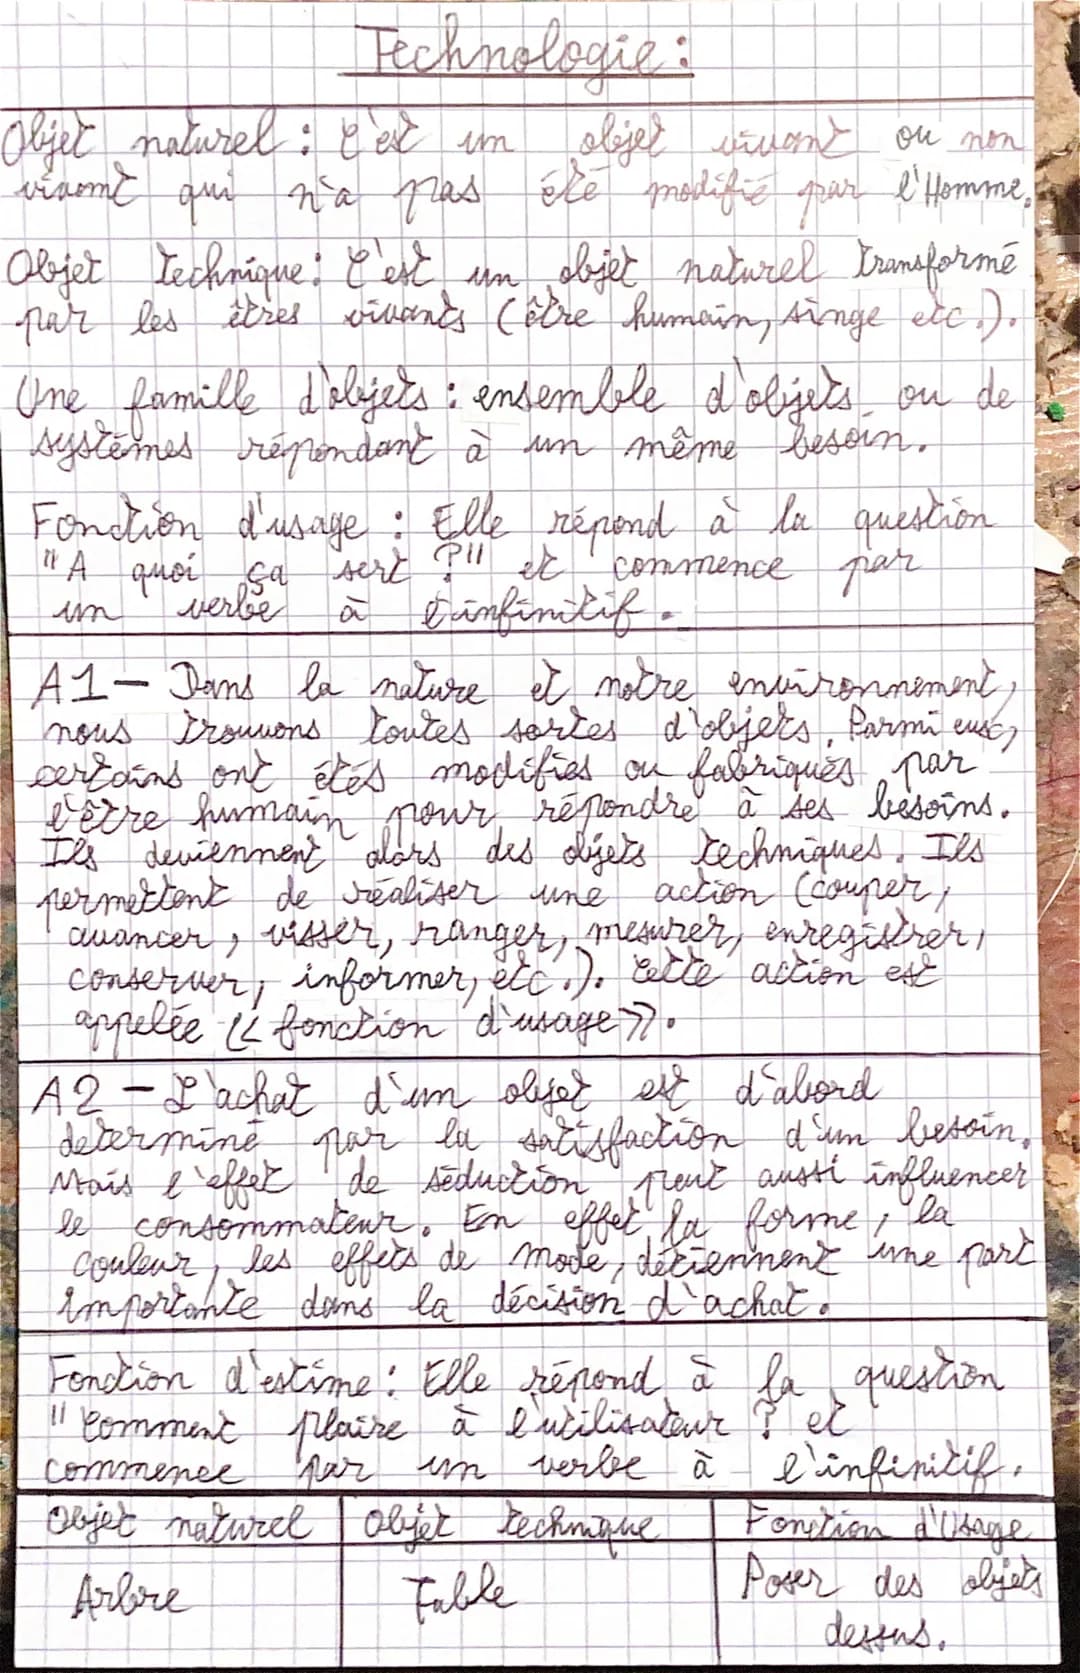 Technologie :
Objet naturel : C'est un objet vivant ou non
vivant qui n'a pas été modifié par l'Homme.
Objet technique : C'est un objet naturel transformé
par les êtres vivants (être humain, singe etc.).
Une famille d'objets : ensemble d'objets ou de
systèmes répondant à un même besoin.
Fonction d'usage : Elle répond à la question
"A quoi ça sert ?" et commence par
un verbe à l'infinitif.
A1 — Dans la nature et notre environnement,
nous trouvons toutes sortes d'objets. Parmi eux,
certains ont étés modifiés ou fabriqués par
l'être humain pour répondre à ses besoins.
Ils deviennent alors des objets techniques. Ils
permettent de réaliser une action (couper,
avancer, visser, ranger, mesurer, enregistrer,
conserver, informer, etc.). Cette action est
appelée << fonction d'usage >>.
A2 — L'achat d'un objet est d'abord
determiné par la satisfaction d'un besoin.
Mais l'effet de séduction peut aussi influencer
le consommateur. En effet la forme, la
couleur, les effets de mode, détiennent une part
importante dans la décision d'achat.
Fonction d'estime : Elle répond à la question
"Comment plaire à l'utilisateur ? et
commence par un verbe à l'infinitif.
Objet naturel Objet technique Fonction d'Usage
Arbre Table Poser des objets
dessus.